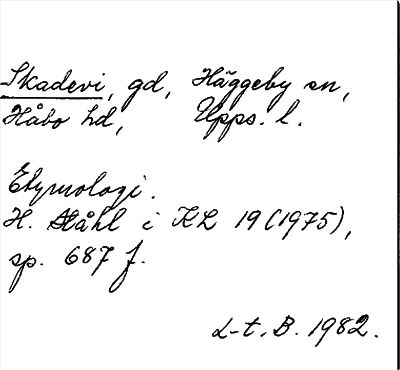 Skadevi, gd, Häggeby sn,
Håbo hd, Upps. l.
Etymologi.
H. Ståhl i KL 19 (1975),
sp. 687 f.
L-t. B. 1982.